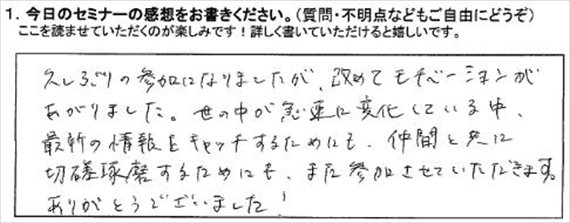 1. 今日のセミナーの感想をお書きください。（質問・不明点などもご自由にどうぞ）
ここを読ませていただくのが楽しみです！詳しく書いていただけると嬉しいです。
久しぶりの参加になりましたが、改めてモチベーションが
あがりました。世の中が急速に変化している中、
最新の情報をキャッチするためにも、仲間と共に
切磋琢磨するためにも、また参加させていただきます。
ありがとうございました！